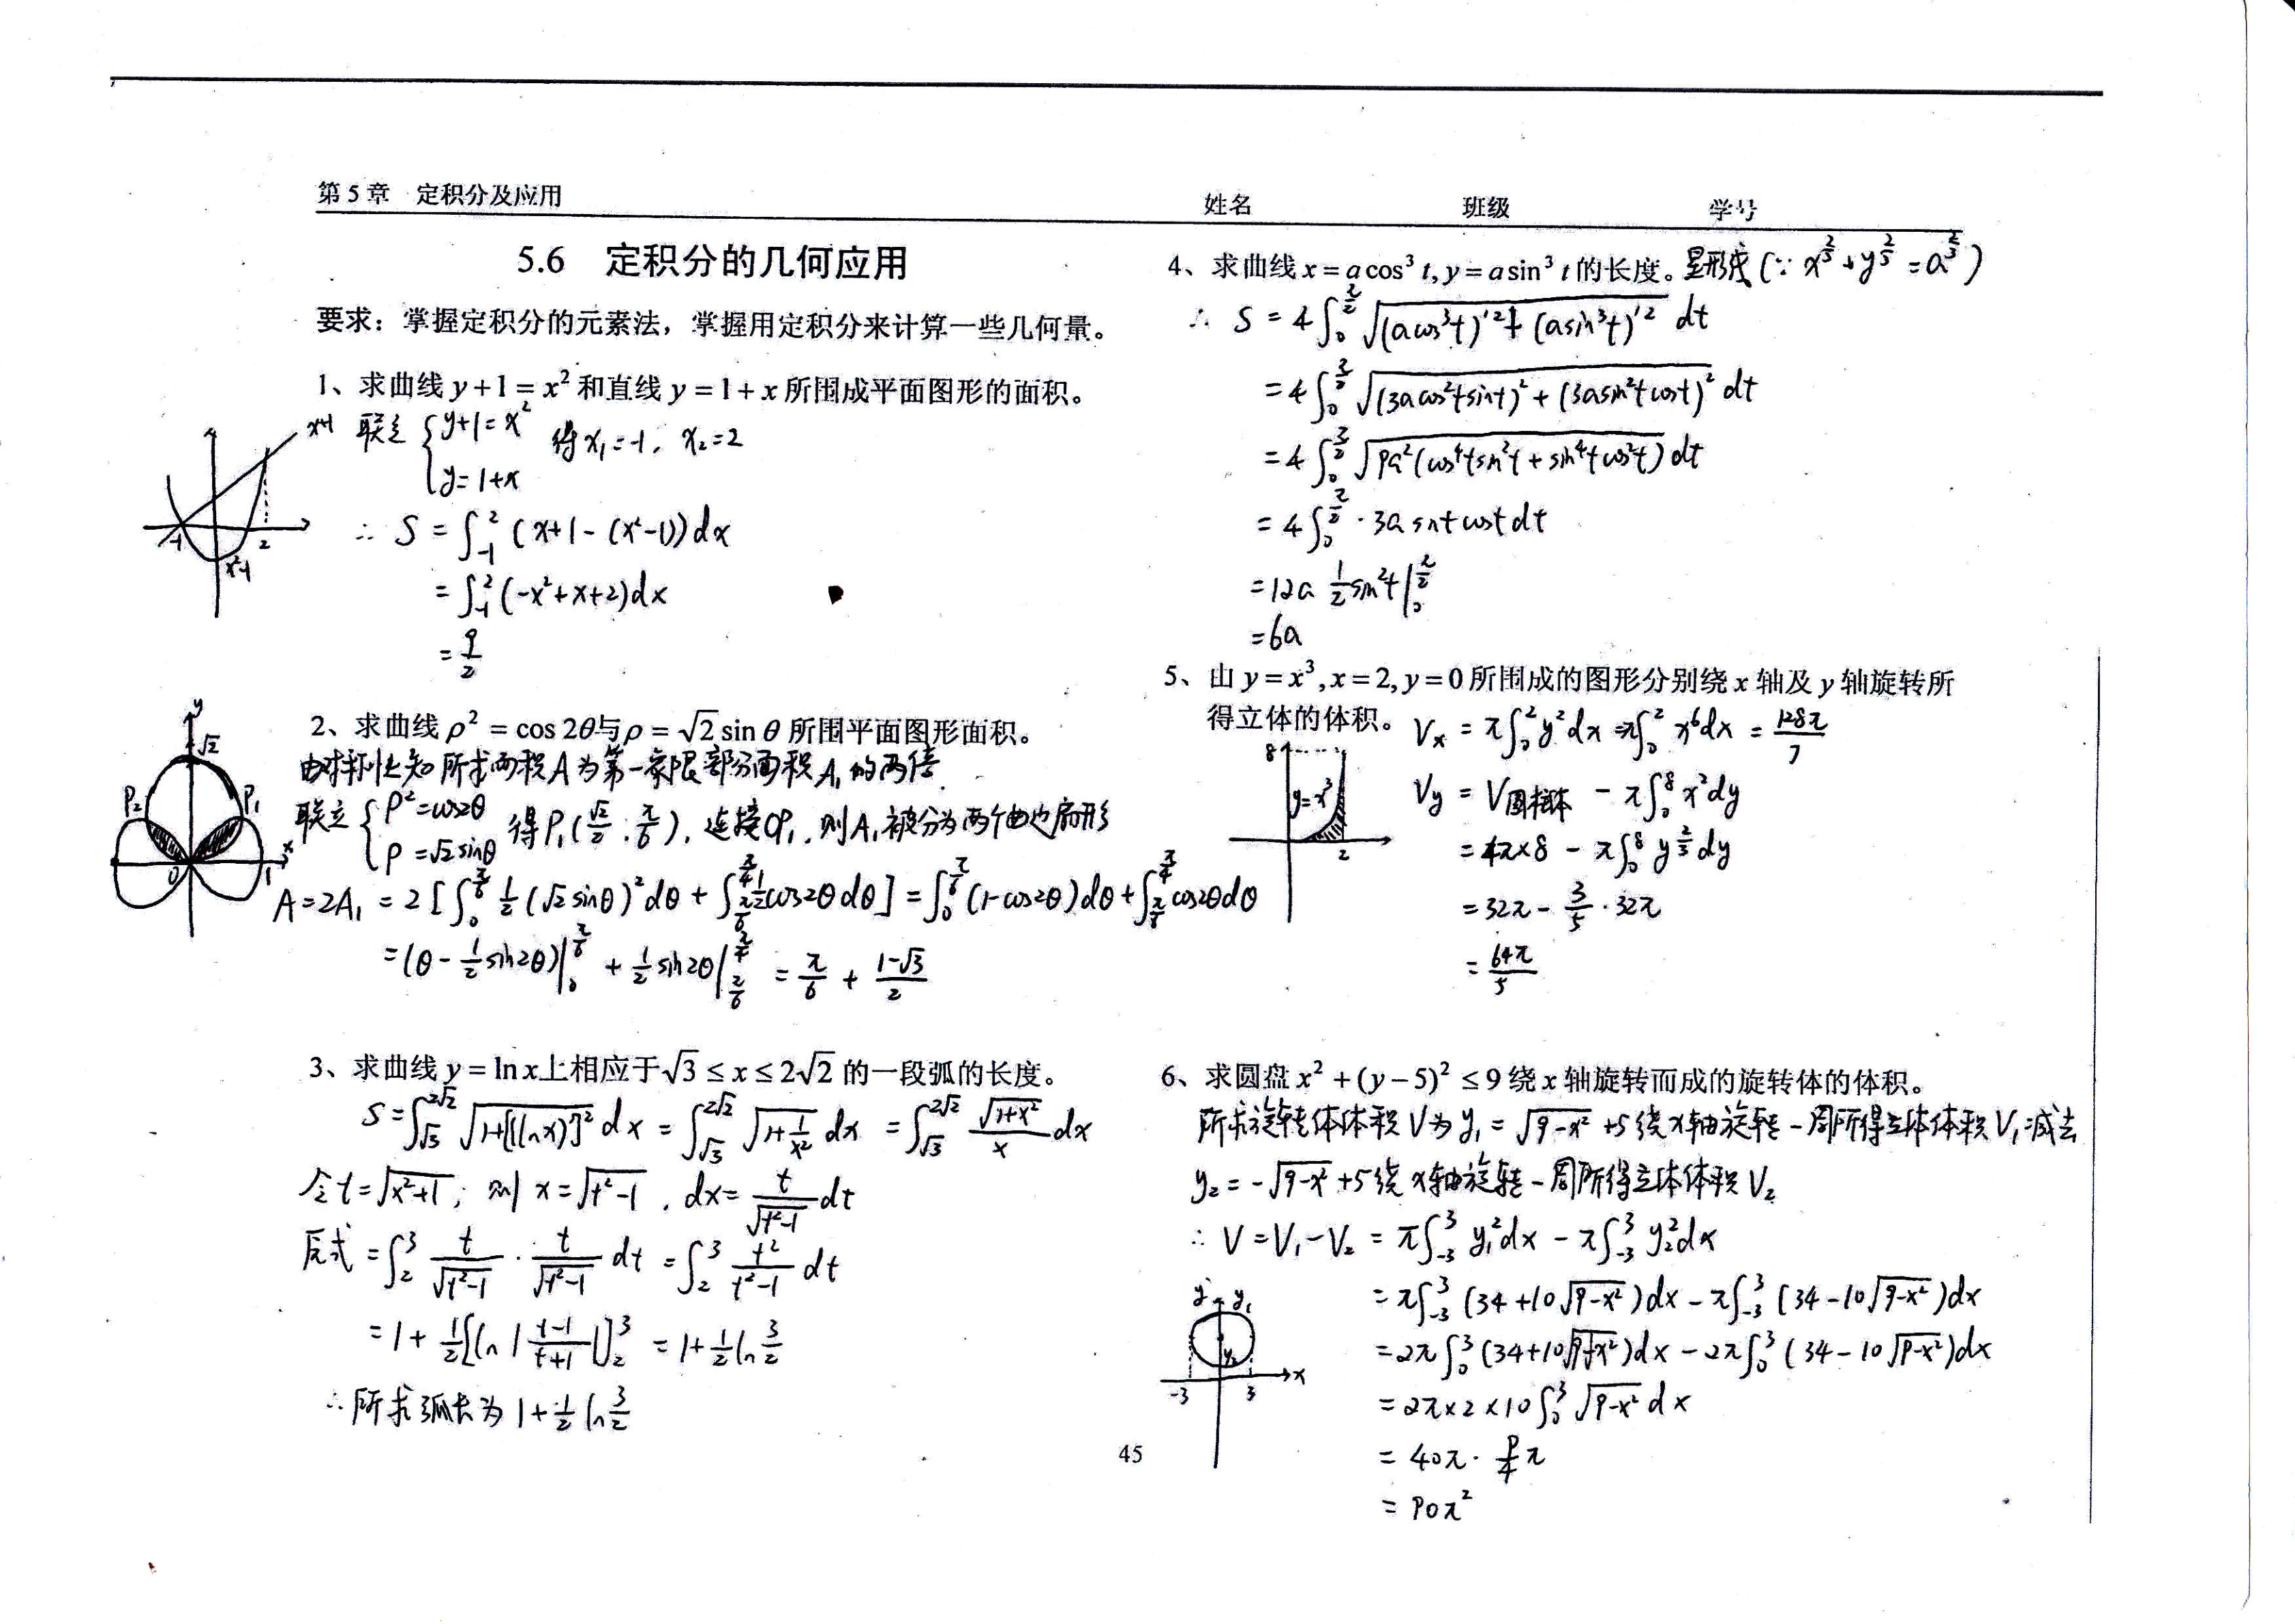 第5章 定积分及应用
姓名 班级 学号
5.6 定积分的几何应用
要求：掌握定积分的元素法，掌握用定积分来计算一些几何量。
1、求曲线 y+1=x² 和直线 y=1+x 所围成平面图形的面积。
联立 { y+1=x² 得 x₁=-1, x₂=2
y=1+x
x+1
-1 2
x²-1
∴ S = ∫₋₁² (x+1-(x²-1))dx
= ∫₋₁² (-x²+x+2)dx
= 9/2
2、求曲线 ρ²=cos2θ与ρ=√2 sinθ 所围平面图形面积。
y √2 P₂ P₁ x O 1
由对称性知 所求面积A为第一象限部分面积A₁的两倍.
联立 { ρ²=cos2θ 得P₁(√2/2, π/6), 连接OP₁, 则A₁被分为两个曲边扇形
ρ=√2 sinθ
A=2A₁ = 2[∫₀^(π/6) 1/2 (√2 sinθ)² dθ + ∫_(π/6)^(π/4) 1/2 cos2θ dθ] = ∫₀^(π/6) (1-cos2θ)dθ + ∫_(π/6)^(π/4) cos2θdθ
= (θ - 1/2 sin2θ)|₀^(π/6) + 1/2 sin2θ|_(π/6)^(π/4) = π/6 + (1-√3)/2
3、求曲线 y=lnx上相应于√3≤x≤2√2 的一段弧的长度。
S = ∫_√3^(2√2) √(1+[(lnx)']²) dx = ∫_√3^(2√2) √(1+1/x²) dx = ∫_√3^(2√2) √(1+x²)/x dx
令 t=√(x²+1), 则 x=√(t²-1), dx= t/√(t²-1) dt
原式 = ∫₂³ t/√(t²-1) · t/√(t²-1) dt = ∫₂³ t²/(t²-1) dt
= 1+ 1/2 [ln|(t-1)/(t+1)|]₂³ = 1+ 1/2 ln 3/2
∴ 所求弧长为 1+ 1/2 ln 3/2
4、求曲线 x=acos³t, y=asin³t 的长度。星形线 (∵ x^(2/3)+y^(2/3)=a^(2/3))
∴ S = 4∫₀^(π/2) √((acos³t)'²+(asin³t)'²) dt
= 4∫₀^(π/2) √((3acos²tsint)²+(3asin²tcost)²) dt
= 4∫₀^(π/2) √(9a²(cos⁴tsin²t+sin⁴tcos²t)) dt
= 4∫₀^(π/2) · 3a sintcostdt
= 12a 1/2 sin²t|₀^(π/2)
= 6a
5、由 y=x³, x=2, y=0 所围成的图形分别绕 x 轴及 y 轴旋转所
得立体的体积。 Vx = π∫₀² y²dx = π∫₀² x⁶dx = 128π/7
8 y=x³ 2
Vy = V圆柱体 - π∫₀⁸ x²dy
= 4π×8 - π∫₀⁸ y^(2/3) dy
= 32π - 3/5 · 32π
= 64π/5
6、求圆盘 x²+(y-5)²≤9 绕 x 轴旋转而成的旋转体的体积。
所求旋转体体积V为 y₁=√(9-x²)+5 绕x轴旋转一周所得立体体积V₁减去
y₂=-√(9-x²)+5绕x轴旋转一周所得立体体积V₂
∴ V=V₁-V₂ = π∫₋₃³ y₁²dx - π∫₋₃³ y₂²dx
= π∫₋₃³ (34+10√(9-x²))dx - π∫₋₃³ (34-10√(9-x²))dx
= 2π∫₀³ (34+10√(9-x²))dx - 2π∫₀³ (34-10√(9-x²))dx
= 2π×2×10∫₀³ √(9-x²) dx
= 40π · 9/4 π
= 90π²
y y₁ y₂ -3 3 x
45